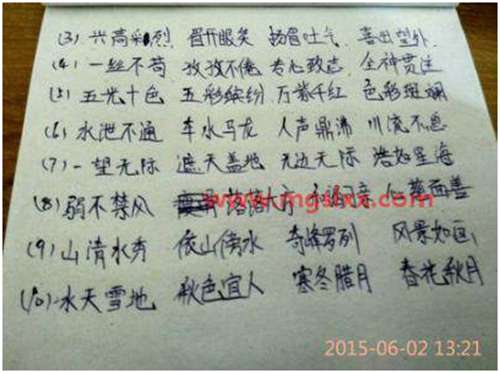 (3) 兴高彩烈 眉开眼笑 扬眉吐气 喜出望外
(4) 一丝不苟 孜孜不倦 专心致志 全神贯注
(5) 五光十色 五彩缤纷 万紫千红 色彩斑斓
(6) 水泄不通 车水马龙 人声鼎沸 川流不息
(7) 一望无际 遮天盖地 无边无际 浩如星海
(8) 弱不禁风 落落大方
(9) 山清水秀 依山傍水 奇峰罗列 风景如画
(10) 水天雪地 秋色宜人 寒冬腊月 春花秋月
2015-06-02 13:21